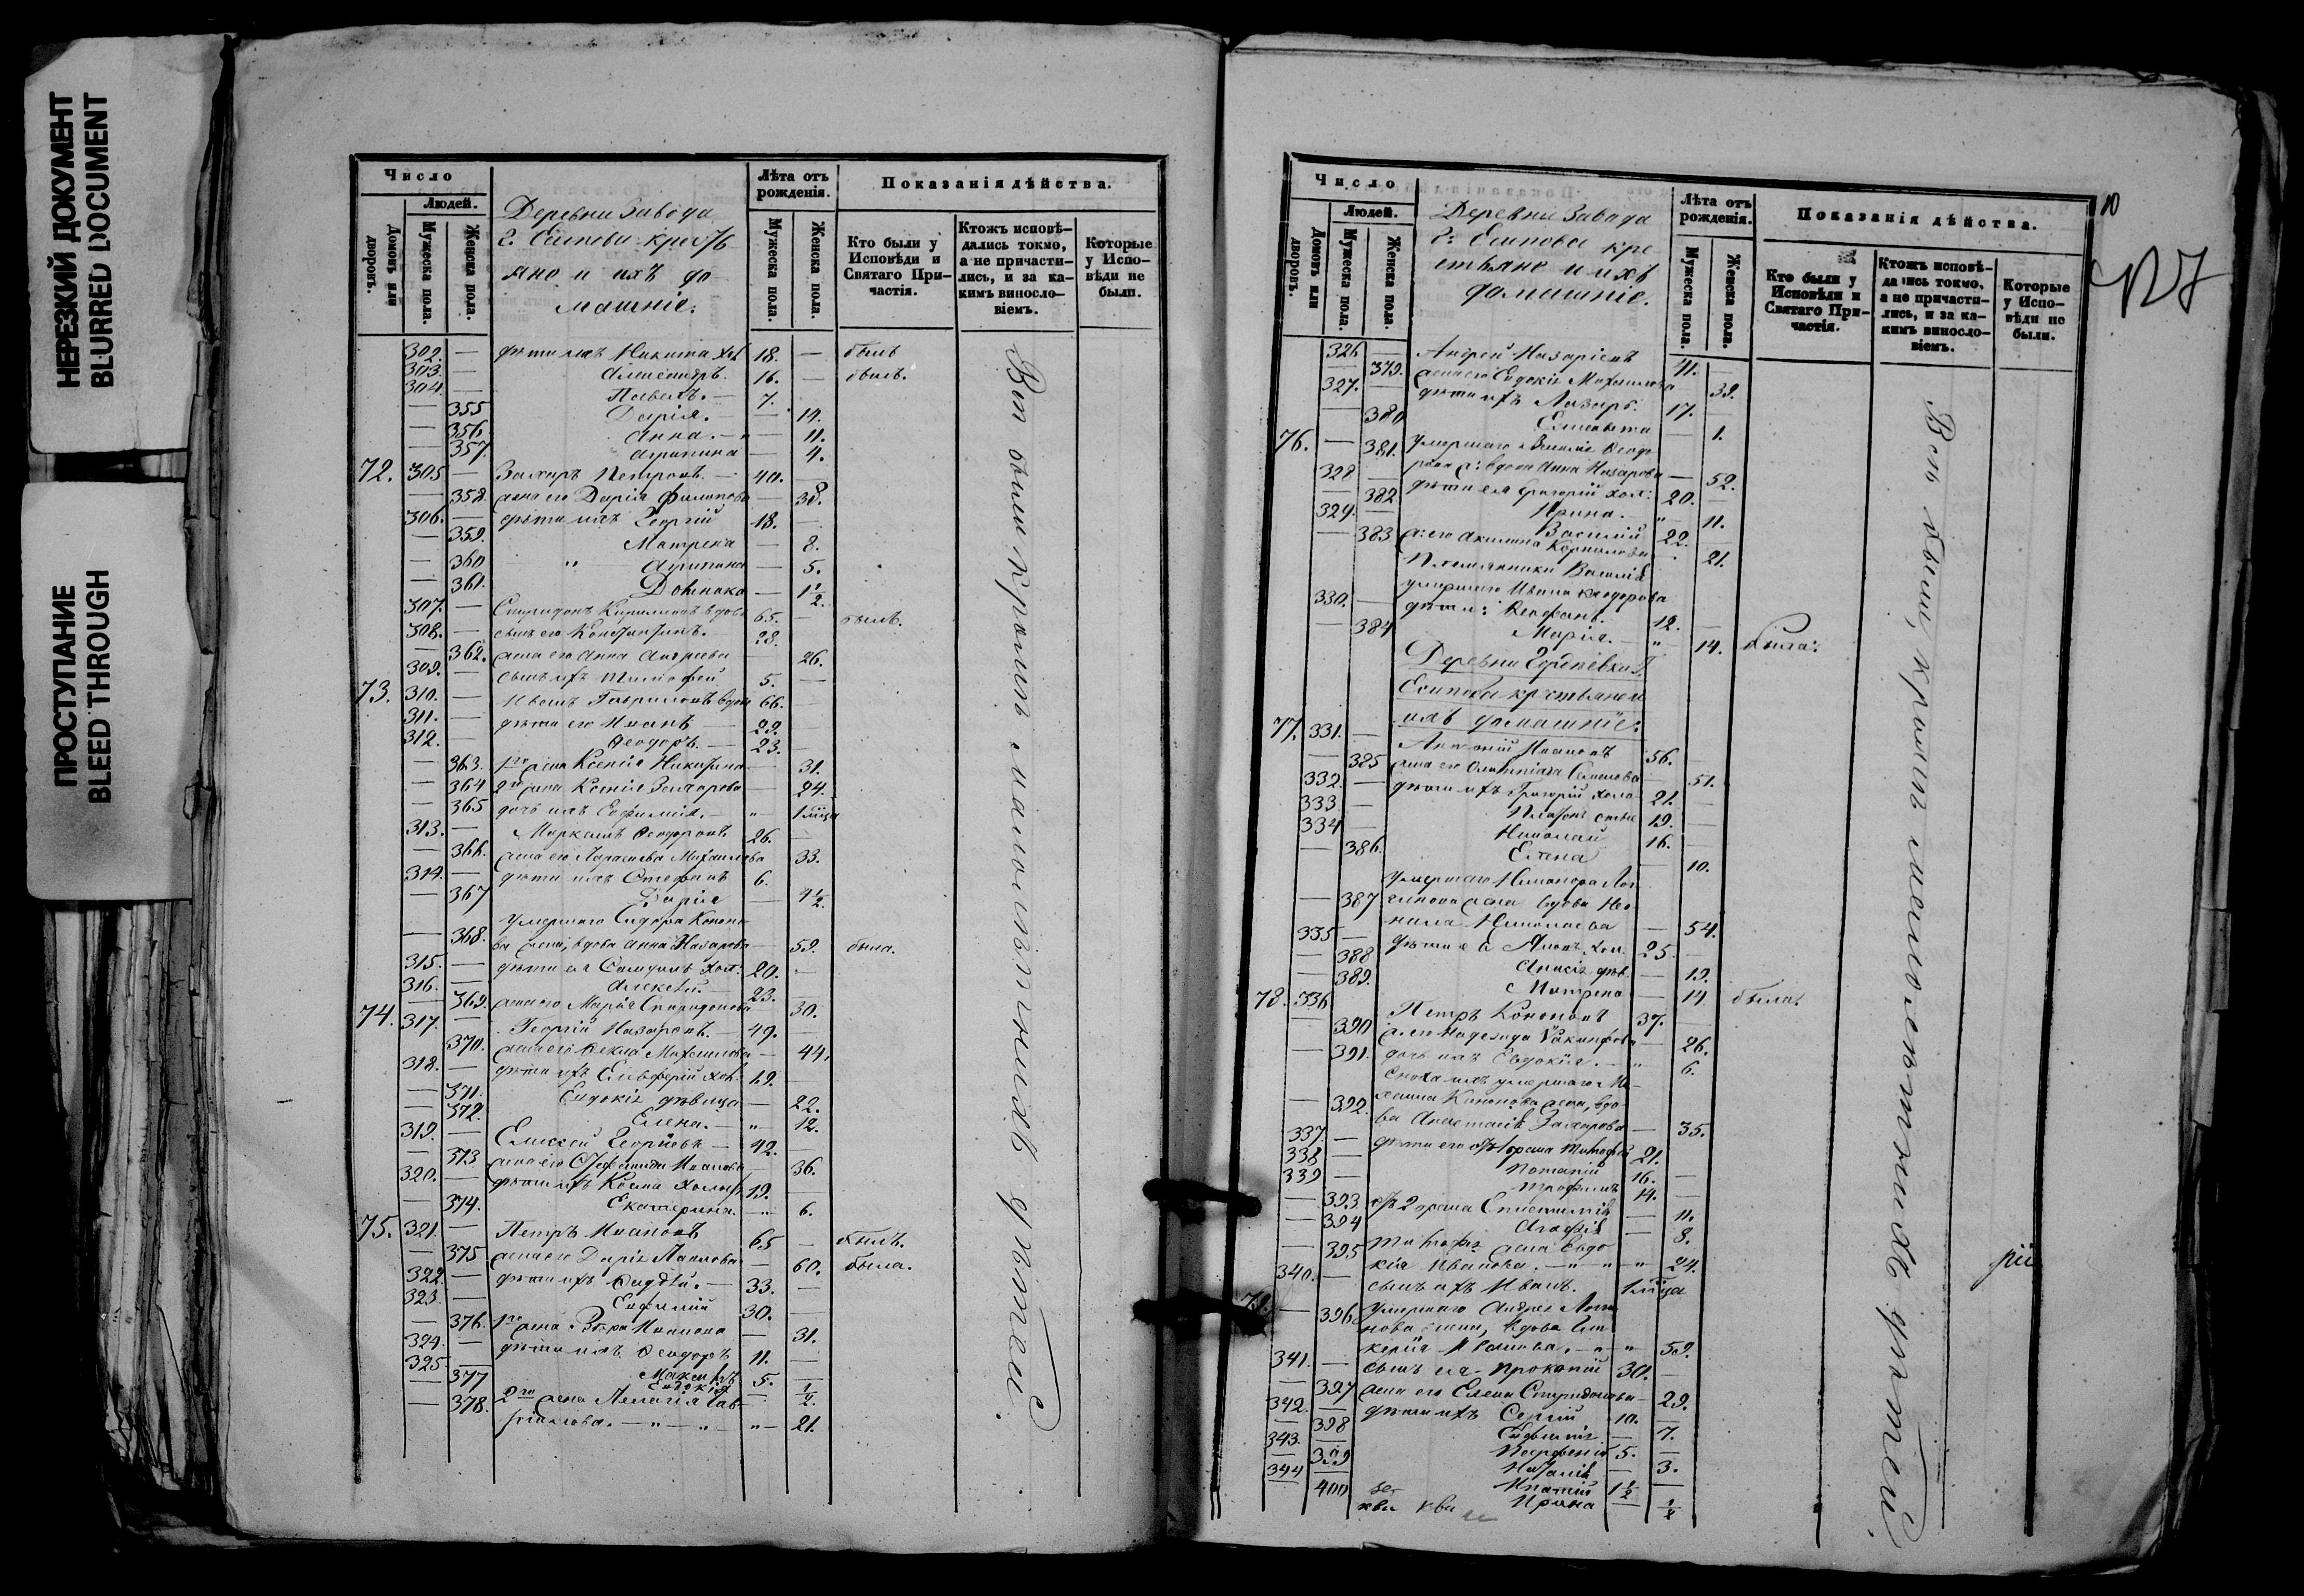 НЕРЕЗКИЙ ДОКУМЕНТ
BLURRED DOCUMENT
ПРОСТУПАНИЕ
BLEED THROUGH
Число
Людей.
Домовъ или дворовъ.
Мужеска пола.
Женска пола.
Деревни Завода
г. Есипова крестъ
яне и ихъ до
машніе.
Лѣта отъ рожденія.
Мужеска пола.
Женска пола.
Показанія дѣйства.
Кто были у Исповѣди и Святаго Причастія.
Ктожъ исповѣдались токмо, а не причастились, и за какимъ винословіемъ.
Которые у Исповѣди не были.
302. — дѣти ихъ Никита хол 18. — былъ
303. — Александръ. 16. — былъ.
304. — Павелъ. — 7.
— 355 Дарія. — 14.
— 356. Анна. — 11.
— 357 Агрипина — 4.
72. 305 — Захаръ Петровъ. — 40. —
— 358. жена его Дарія Филипова — 38.
306. — дѣти ихъ Георгій 18. —
— 359. Матрена — 8.
— 360 " Агрипина — 5.
— 361. — 1 1/2.
307. — Спиридонъ Кириловъ вдовъ 65. — былъ.
308. — сынъ его Константинъ. — 28.
— 362. жена его Анна Андреева 26.
309. — сынъ ихъ Тимофей 5. —
73. 310. — Иванъ Гавриловъ вдов 66.
311. — дѣти его Иванъ — 29.
312. — Ѳеодоръ. — 23. —
— 363. 1го жена Ксенія Никитина 31.
— 364 2го жена Ксенія Захарова — 24.
— 365 дочь ихъ Евфимія. — " 1 мца
313. — Ѳеодоровъ 26. —
— 366. жена его Параскева Михаилова 33.
314. — дѣти ихъ Стефанъ 6.
— 367 Дарія — 4 1/2.
умершаго Сидора Конона
— 368. ва жена, вдова Анна Назарова — 59. была.
315. — дѣти ея хол. 20. —
316. — Алексѣй. 23.
— 369. жена его Марія Спиридонова 30.
74. 317. — Георгій Назаровъ. — 49. —
— 370. жена его Ѳекла Михаилова — 44.
318. — дѣти ихъ Елевферій хол. 19. —
— 371. Евдокія дѣвица — 22.
— 372. Елена. — " 12.
319. — Елисей Георгіевъ — 42. —
— 373 жена его Стефанида Иванова 36.
320. — дѣти ихъ Косма холост 19. —
— 374. Екатерина. — " 6.
75. 321. — Петръ Ивановъ 65 — былъ.
— 375 жена его Дарія Павлова — 60. была.
322 — дѣти ихъ — 33. —
323. — Евфимій 30.
— 376. 1го жена Вѣра Иванова — 31.
324. — дѣти ихъ Ѳеодоръ 11. —
325 — Максимъ 5. —
— 377 Евдокія — 1/2.
— 378. 2го жена Пелагія Гав-
рилова. — " — " " — 21.
Вси оныи кромѣ малолѣтнихъ дѣтей.
Число
Людей.
Домовъ или дворовъ.
Мужеска пола.
Женска пола.
Деревни Завода
г: Есипова кре
стьяне и ихъ
домашніе.
Лѣта отъ рожденія.
Мужеска пола.
Женска пола.
Показанія дѣйства.
Кто были у Исповѣди и Святаго Причастія.
Ктожъ исповѣдались токмо, а не причастились, и за какимъ винословіемъ.
Которые у Исповѣди не были.
10
326 — Андрей Назаріевъ 41. —
— 379. жена его Евдокія Михаилова 39.
327. — дѣти ихъ Лазарь. 17. —
— 380 Елисавета — 1.
76. — 381. умершаго Василія Ѳеодо
рова ж: вдова Анна Назарова — 52.
328 — дѣти ея Григорій хол: 20. —
— 382 Ирина. — " 11.
329. — Василій 22. —
— 383 ж: его Акилина Корнилова 21.
Племянники Василія
умершаго Ивана Ѳеодорова
330. — дѣти: Ѳеофанъ. 12. —
— 384 Марія. — " 14. была:
Деревни Гордѣевки г.
Есипова крестьяне и
ихъ домашніе:
77. 331. — Антоній Ивановъ 56. —
— 385 жена его Олимпіада Семенова 51.
332. — дѣти ихъ Григорій холо 21. —
333 — Платонъ 19. —
334 — Николай 16.
— 386. Елена — 10.
умершаго Никанора Лон
— 387 гинова жена вдова Нео
нила Николаева — 54.
335 — дѣти ея хол. 25. —
— 388 Анисія дѣв. — 19.
— 389. Матрена — 14 была.
78. 336 Петръ Кононовъ 37. —
— 390 ж. его Надежда Іакинфова 26.
— 391. дочь ихъ Евдокія. — " 6.
Сноха ихъ умершаго Ми-
хаила Кононова жена, вдо-
— 392. ва Анастасія Захарова — 35.
337. — дѣти его отъ 1 брака Тимофей 21.
338 — Потапій 16. —
339 — Трофимъ 14. —
— 393 отъ 2 брака 11.
— 394 Агафія — 8.
— 395 Тимофея жена Евдо
кія Иванова. — " " " 24.
340. — сынъ ихъ Иванъ. 1 мца
79. — 396. умершаго Андрея Логи
нова жена, вдова Гли
керія Иванова. — " " 59.
341. — сынъ ея Прокопій 30. —
— 397 жена его Елена Спиридонова — 29.
342. — дѣти ихъ Сергій 10. —
— 398 Евфимія — 7.
343. — Парфеній 5. —
— 399 Наталія — 3.
344 — Ипатій 1 1/2 —
— 400 Ирина — 1/2
Вси оныи кромѣ малолѣтнихъ дѣтей.